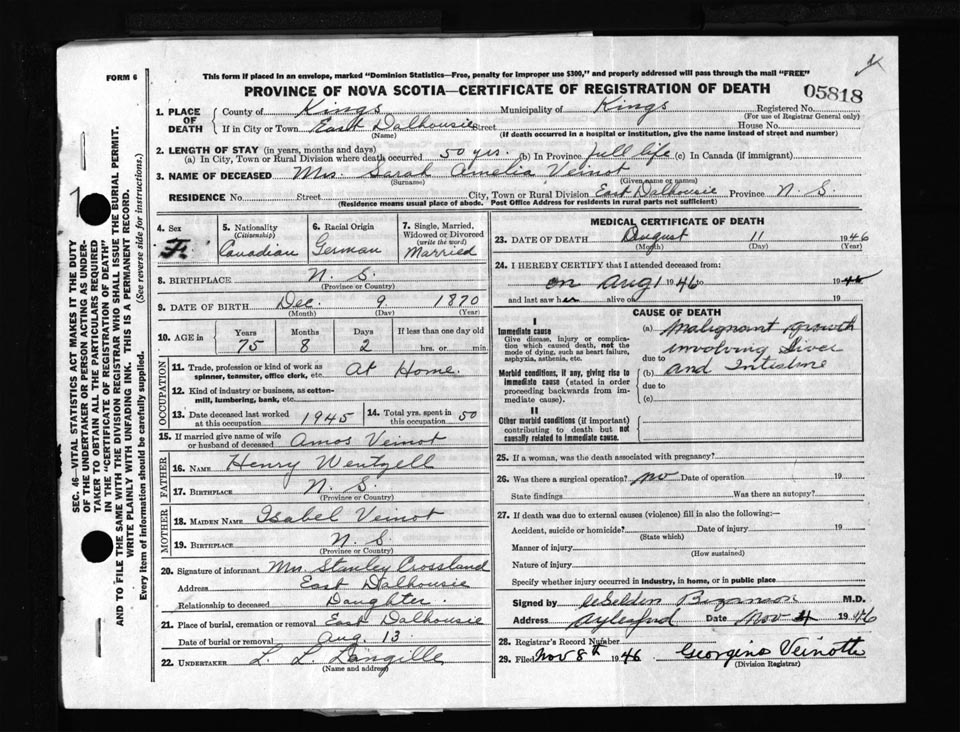 FORM 6
This form if placed in an envelope, marked "Dominion Statistics—Free, penalty for improper use $300," and properly addressed will pass through the mail "FREE"
PROVINCE OF NOVA SCOTIA—CERTIFICATE OF REGISTRATION OF DEATH
05818
1. PLACE OF DEATH
County of Kings Municipality of Kings Registered No.
(For use of Registrar General only)
If in City or Town East Dalhousie Street House No.
(Name) (If death occurred in a hospital or institution, give the name instead of street and number)
2. LENGTH OF STAY (in years, months and days)
(a) In City, Town or Rural Division where death occurred 50 yrs. (b) In Province full life (c) In Canada (if immigrant)
3. NAME OF DECEASED Mrs. Sarah Amelia Veinot
(Surname) (Given name or names)
RESIDENCE No. Street City, Town or Rural Division East Dalhousie Province N. S.
(Residence means usual place of abode. Post Office Address for residents in rural parts not sufficient)
4. Sex F.
5. Nationality (Citizenship) Canadian
6. Racial Origin German
7. Single, Married, Widowed or Divorced (write the word) Married
8. BIRTHPLACE N. S.
(Province or Country)
9. DATE OF BIRTH Dec. 9 1870
(Month) (Day) (Year)
10. AGE in Years Months Days If less than one day old
75 8 2 hrs. or min.
OCCUPATION
11. Trade, profession or kind of work as spinner, teamster, office clerk, etc. At Home.
12. Kind of industry or business, as cotton-mill, lumbering, bank, etc.
13. Date deceased last worked at this occupation 1945
14. Total yrs. spent in this occupation 50
15. If married give name of wife or husband of deceased Amos Veinot
FATHER
16. NAME Henry Wentzell
17. BIRTHPLACE N. S.
(Province or Country)
MOTHER
18. MAIDEN NAME Isabel Veinot
19. BIRTHPLACE N. S.
(Province or Country)
20. Signature of informant Mrs. Stanley Crossland
Address East Dalhousie
Relationship to deceased Daughter.
21. Place of burial, cremation or removal East Dalhousie
Date of burial or removal Aug. 13
22. UNDERTAKER L. L. Langille
(Name and address)
MEDICAL CERTIFICATE OF DEATH
23. DATE OF DEATH August 11 1946
(Month) (Day) (Year)
24. I HEREBY CERTIFY that I attended deceased from:
on Aug 1 1946 to 1946
and last saw her alive on 19
CAUSE OF DEATH
I
Immediate cause
Give disease, injury or complication which caused death, not the mode of dying, such as heart failure, asphyxia, asthenia, etc.
(a) Malignant growth
involving Liver
due to
(b) and Intestine
Morbid conditions, if any, giving rise to immediate cause (stated in order proceeding backwards from immediate cause).
due to
(c)
II
Other morbid conditions (if important) contributing to death but not causally related to immediate cause.
25. If a woman, was the death associated with pregnancy?
26. Was there a surgical operation? no Date of operation 19
State findings Was there an autopsy?
27. If death was due to external causes (violence) fill in also the following:—
Accident, suicide or homicide? Date of injury 19
(State which)
Manner of injury
(How sustained)
Nature of injury
Specify whether injury occurred in industry, in home, or in public place
Signed by Bezanson M.D.
Address Aylesford Date Nov 4 1946
28. Registrar's Record Number
29. Filed Nov 8th 1946 Georgina Veinotte
(Division Registrar)
SEC. 46—VITAL STATISTICS ACT MAKES IT THE DUTY
OF THE UNDERTAKER OR PERSON ACTING AS UNDER-
TAKER TO OBTAIN ALL THE PARTICULARS REQUIRED
IN THE "CERTIFICATE OF REGISTRATION OF DEATH"
AND TO FILE THE SAME WITH THE DIVISION REGISTRAR WHO SHALL ISSUE THE BURIAL PERMIT.
WRITE PLAINLY WITH UNFADING INK. THIS IS A PERMANENT RECORD.
Every item of information should be carefully supplied. (See reverse side for instructions.)